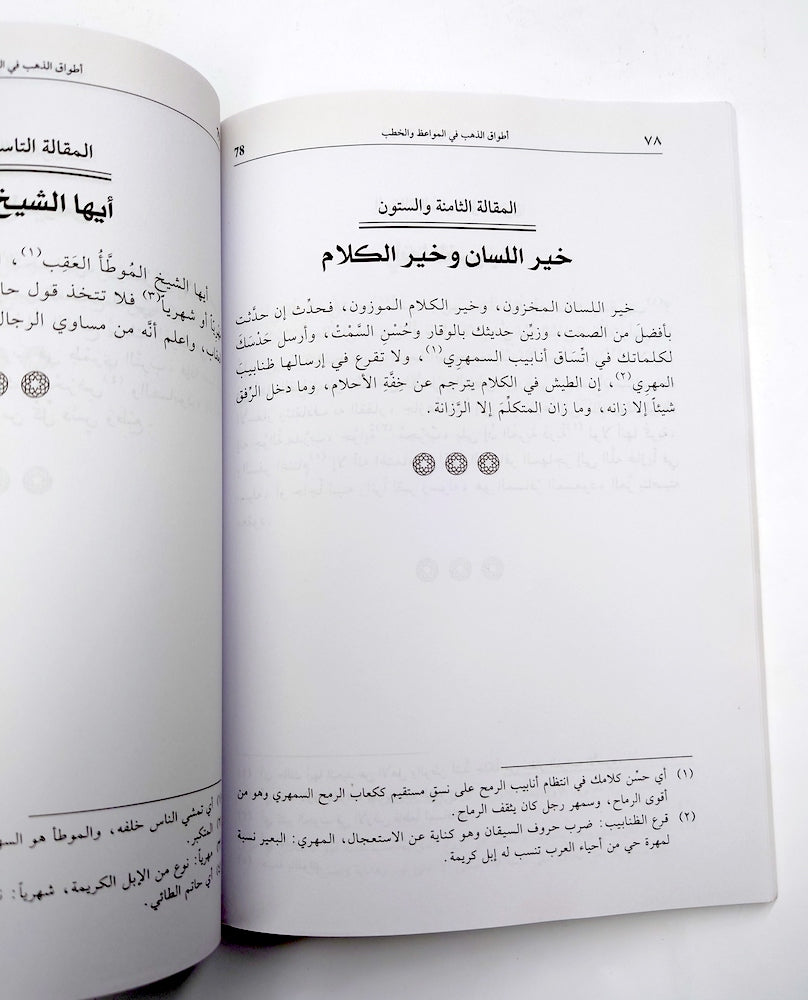 أطواق الذهب في المواعظ والخطب
٧٨
78
المقالة الثامنة والستون
خير اللسان وخير الكلام
خير اللسان المخزون، وخير الكلام الموزون، فحدِّث إن حدَّثت
بأفضلَ من الصمت، وزيِّن حديثك بالوقار وحُسْنِ السَّمْتْ، وأرسل حَدْسَكَ
لكلماتك في اتِّسَاق أنابيب السمهرِي(١)، ولا تقرع في إرسالها ظنابيبَ
المهرِي(٢)، إن الطيش في الكلام يترجم عن خِفَّةِ الأحلام، وما دخل الرِّفق
شيئاً إلا زانه، وما زان المتكلِّمَ إلا الرَّزانة.
(١) أي حسْن كلامك في انتظام أنابيب الرمح على نسقٍ مستقيم ككعابْ الرمح السمهري وهو من
أقوى الرماح، وسمهر رجل كان يثقف الرماح.
(٢) قرع الظنابيب: ضرب حروف السيقان وهو كناية عن الاستعجال، المهري: البعير نسبة
لمهرة حي من أحياء العرب تنسب له إبل كريمة.
أطواق الذهب في
المقالة
أيها الشيخ
أيها الشيخ المُوطَّأُ العَقِب(١)،
أو شهرياً(٣) فلا تتخذ قول
واعلم أنَّه من مساوي الرجال
أي تمشي الناس خلفه، والموطأ هو
المتكبر.
مهرياً: نوع من الإبل الكريمة، شهرياً:
أي حاتم الطائي.